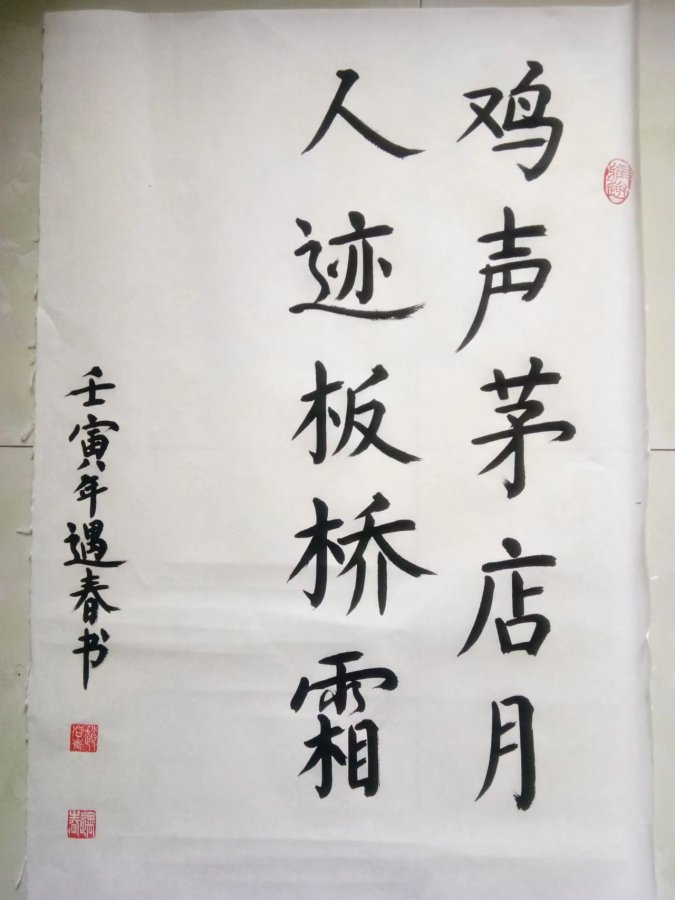 鸡声茅店月
人迹板桥霜
壬寅年遇春书